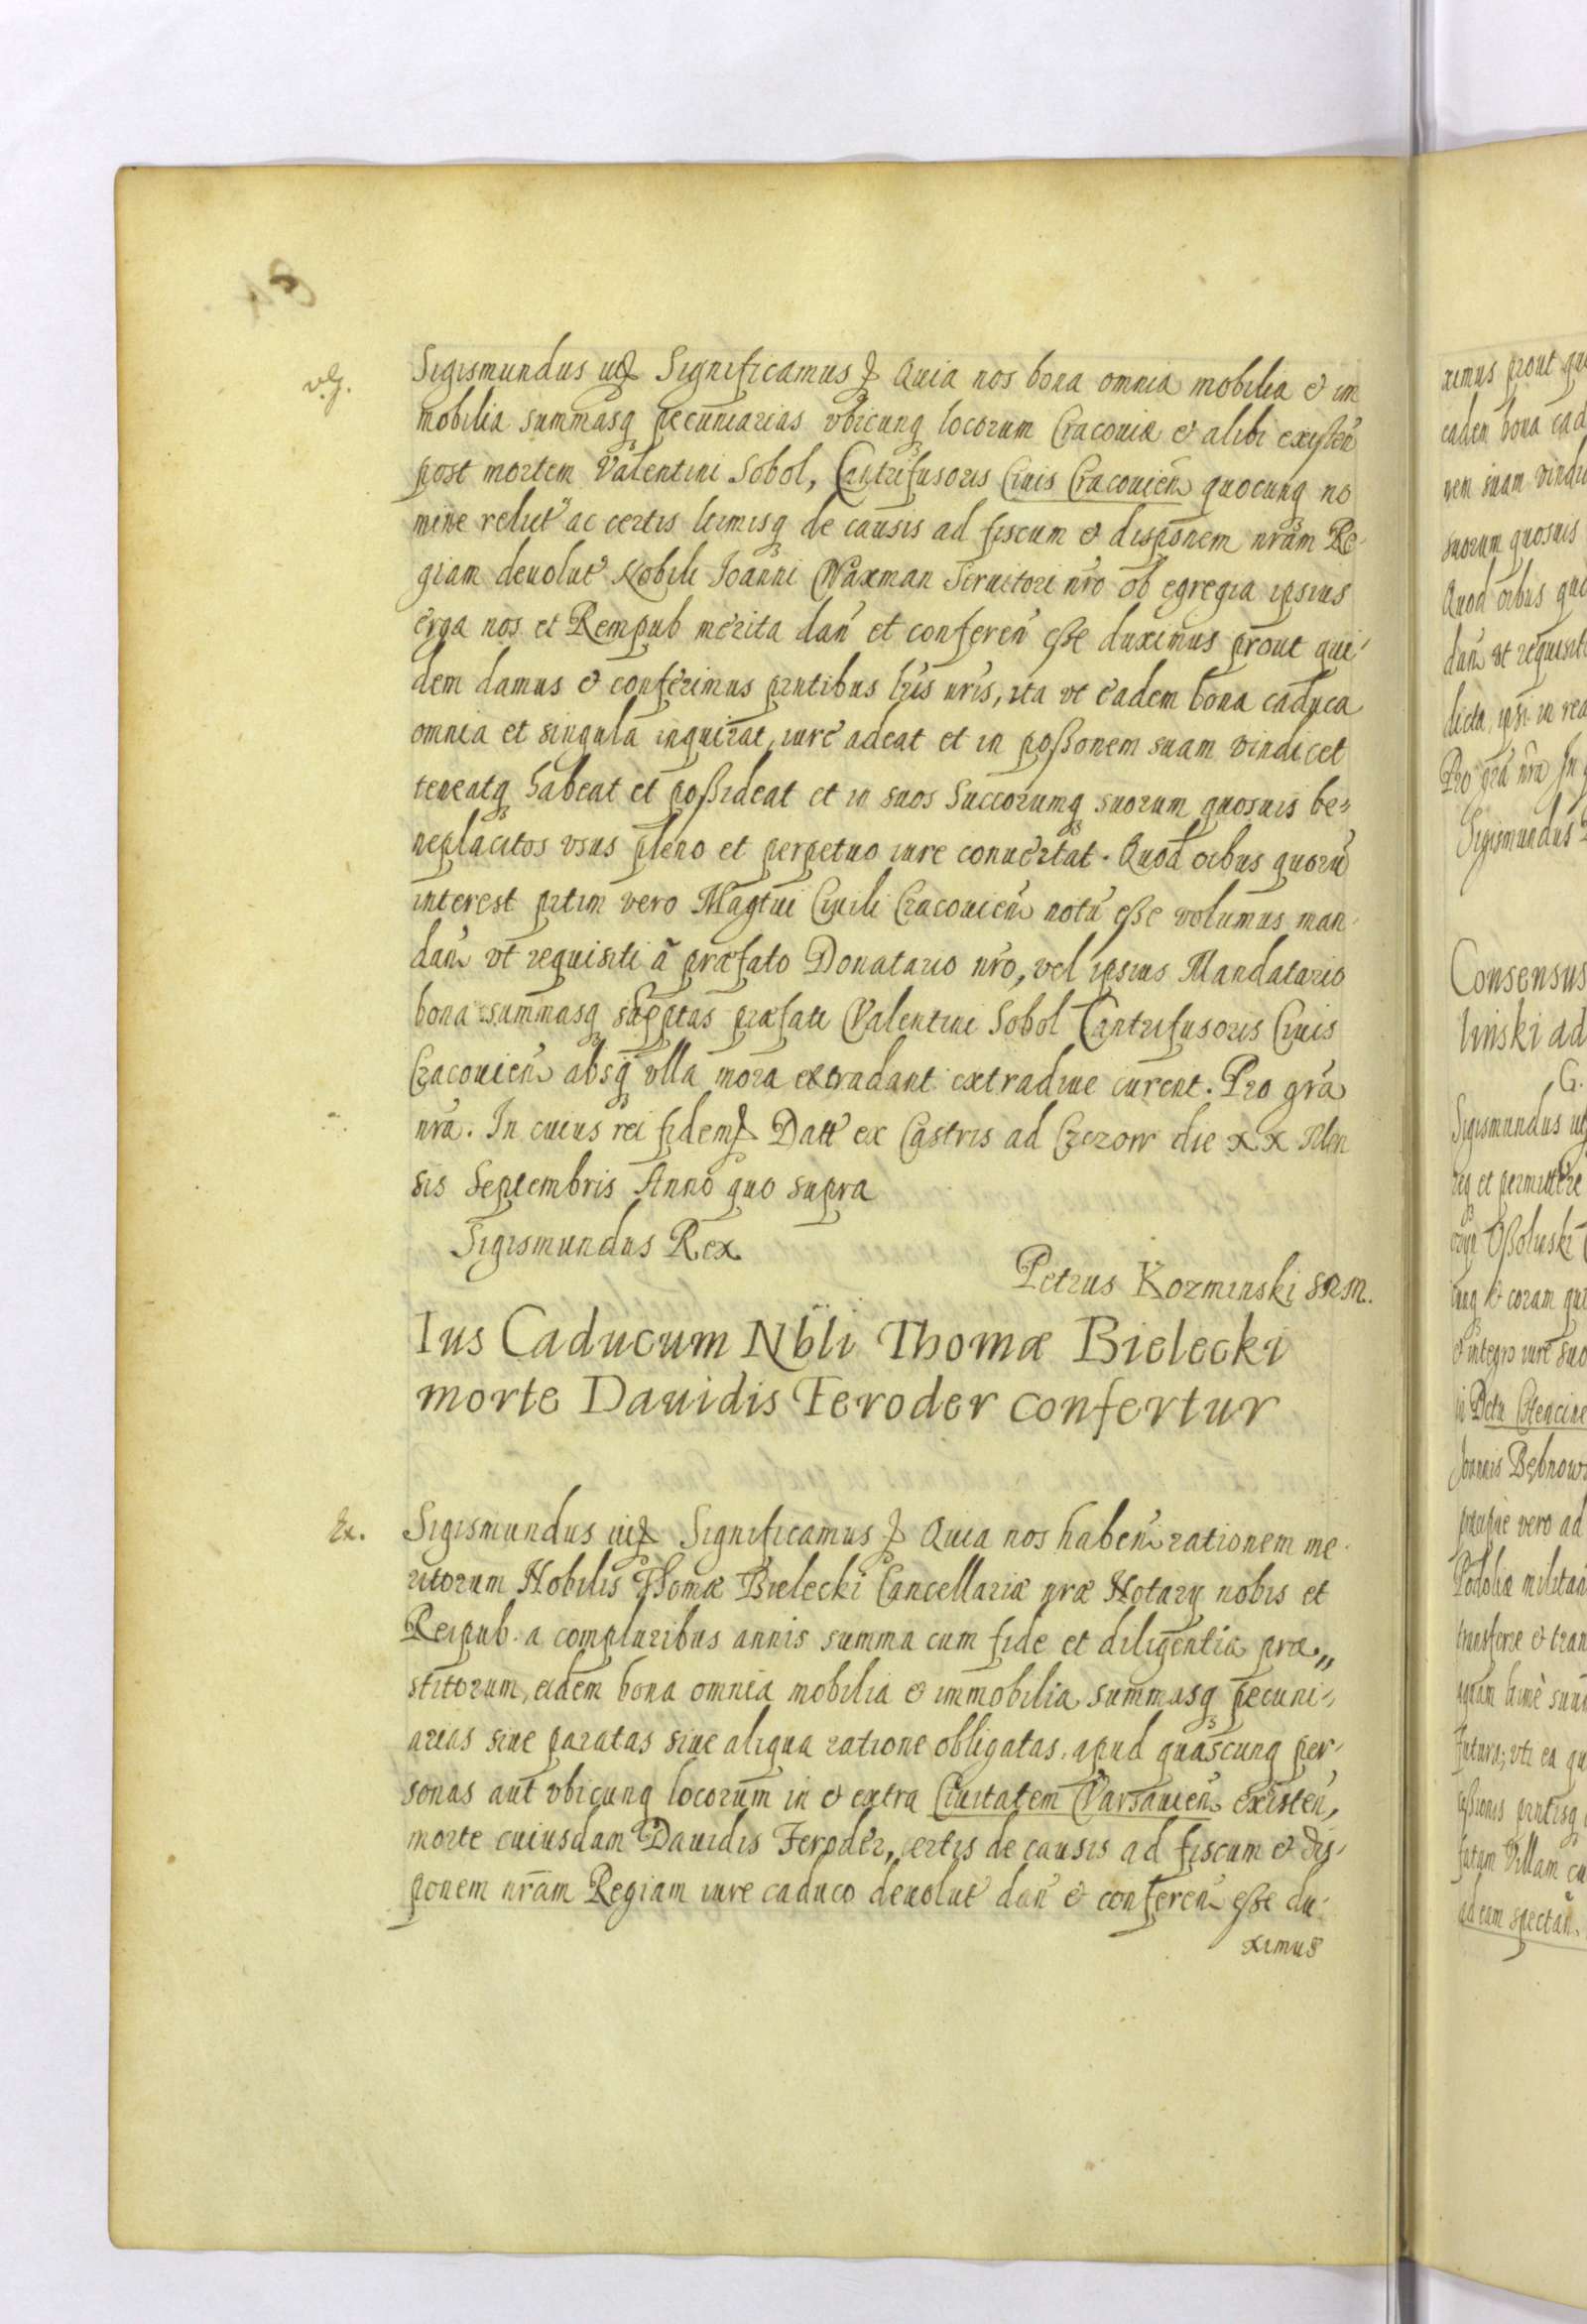 vlg.
Sigismundus utq Significamus q Quia nos bona omnia mobilia & im
mobilia summasq pecuniarias vbicunq locorum Cracouiæ & alibi existen
post mortem Valentini Sobol, Cantrifusoris Ciuis Cracouien quocunq no
mine relict ac certis ltimisq de causis ad fiscum & disponem nram Re-
giam deuolut Nobili Ioanni Waxman Seruitori nro ob egregia ipsius
erga nos et Rempub merita dan et conferen esse duximus prout qui-
dem damus & conferimus pntibus lris nris, ita vt eadem bona caduca
omnia et singula inquirat, iure adeat et in possonem suam vindicet
teneatq habeat et possideat et in suos Succorumq suorum quosuis be-
neplacitos vsus pleno et perpetuo iure conuertat. Quod oibus quoru
interest prtim vero Magtui Ciuili Cracouien notu esse volumus man-
dan vt requisiti a præfato Donatario nro, vel ipsius Mandatario
bona summasq præfati Valentini Sobol Cantrifusoris Ciuis
Cracouien absq vlla mora extradant extradiue curent. Pro gra
nra. In cuius rei fidem q Datt ex Castris ad Czczorr die xx Men
sis Septembris Anno quo supra
Sigismundus Rex
Petrus Kozminski SRM.
Ius Caducum Nbli Thomæ Bielecki
morte Dauidis Feroder confertur
Ex.
Sigismundus utq Significamus q Quia nos haben rationem me-
ritorum Nobilis Thomæ Bielecki Cancellariæ nræ Notarij nobis et
Reipub. a compluribus annis summa cum fide et diligentia præ„
stitorum, eidem bona omnia mobilia & immobilia summasq pecuni-
arias siue paratas siue aliqua ratione obligatas, apud quascunq per-
sonas aut vbicunq locorum in & extra Ciuitatem Varsauien existen,
morte cuiusdam Dauidis Feroder, certis de causis ad fiscum & dis-
ponem nram Regiam iure caduco deuolut dan & conferen esse du-
ximus
ximus prout
eadem bona
nem suam
suorum quosuis
Quod oibus
dan vt
dicta ipsi in
Pro gra nra In
Sigismundus
Consensus
linski ad
G.
Sigismundus
et permittere
& coram
& integro iure suo
Ioannis
vero ad
transferre &
ad eam spectan